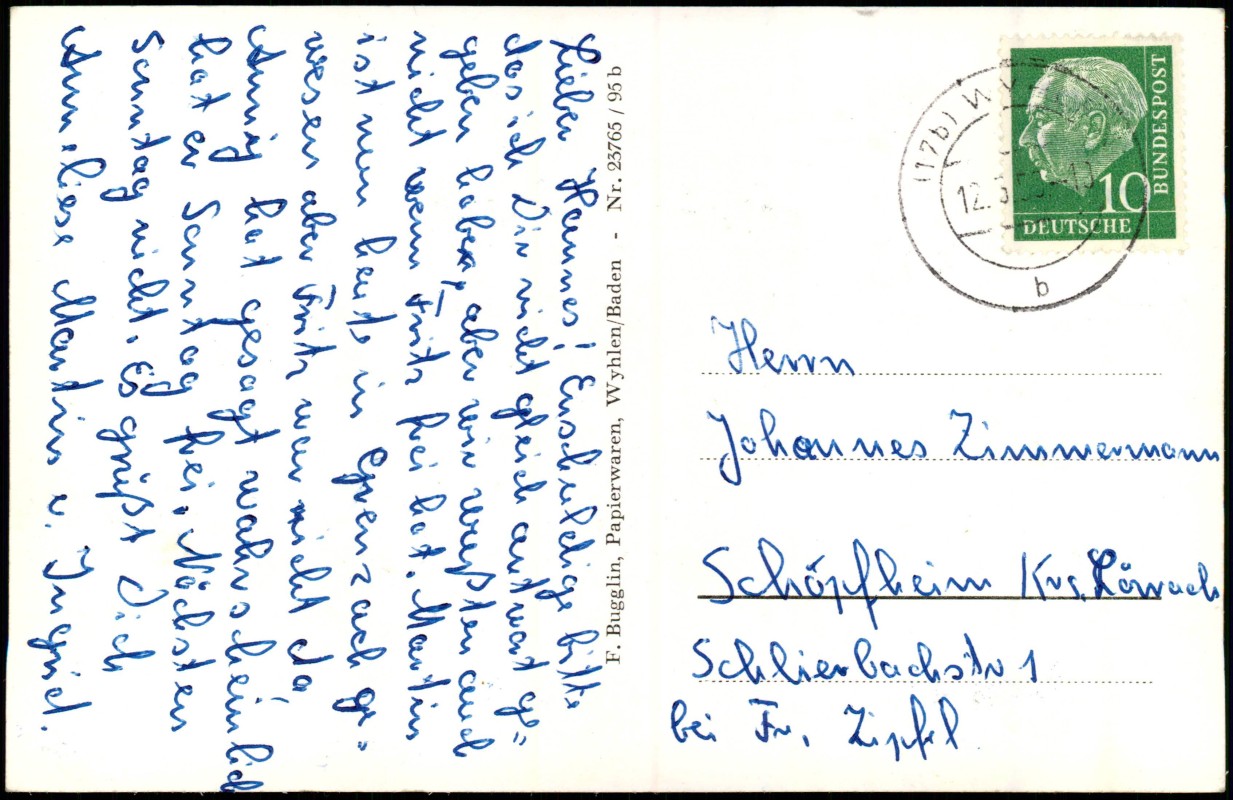 Lieber Hannes! Enschuldige bitte
das ich Dir nicht gleich antwort ge=
geben habe, aber wir wußten auch
nicht wenn Fritz frei hat. Martin
ist nun heute in Grenzach ge-
wesen aber Fritz war nicht da
Anny hat gesagt wahrscheinlich
hat er Sonntag frei. Nächsten
Sonntag nicht. Es grüßt Dich
Anneliese Martin u. Ingrid.
F. Bugglin, Papierwaren, Wyhlen/Baden - Nr. 23765 / 95 b
(17b) WY
12.
b
10
BUNDESPOST
DEUTSCHE
Herrn
Johannes Zimmermann
Schöpfheim Krs. Lörrach
Schlierbachstr 1
bei Fr. Zipfel